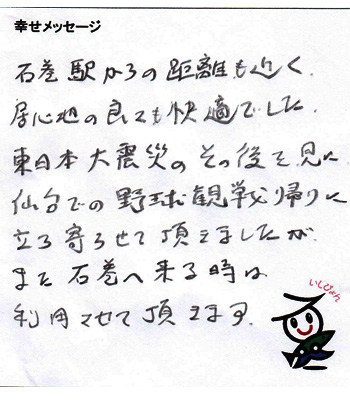 幸せメッセージ
石巻駅からの距離も近く、
居心地の良さも快適でした。
東日本大震災のその後を見に
仙台での野球観戦帰りに
立ち寄らせて頂きましたが、
また石巻へ来る時は
利用させて頂きます。
いしぴょん